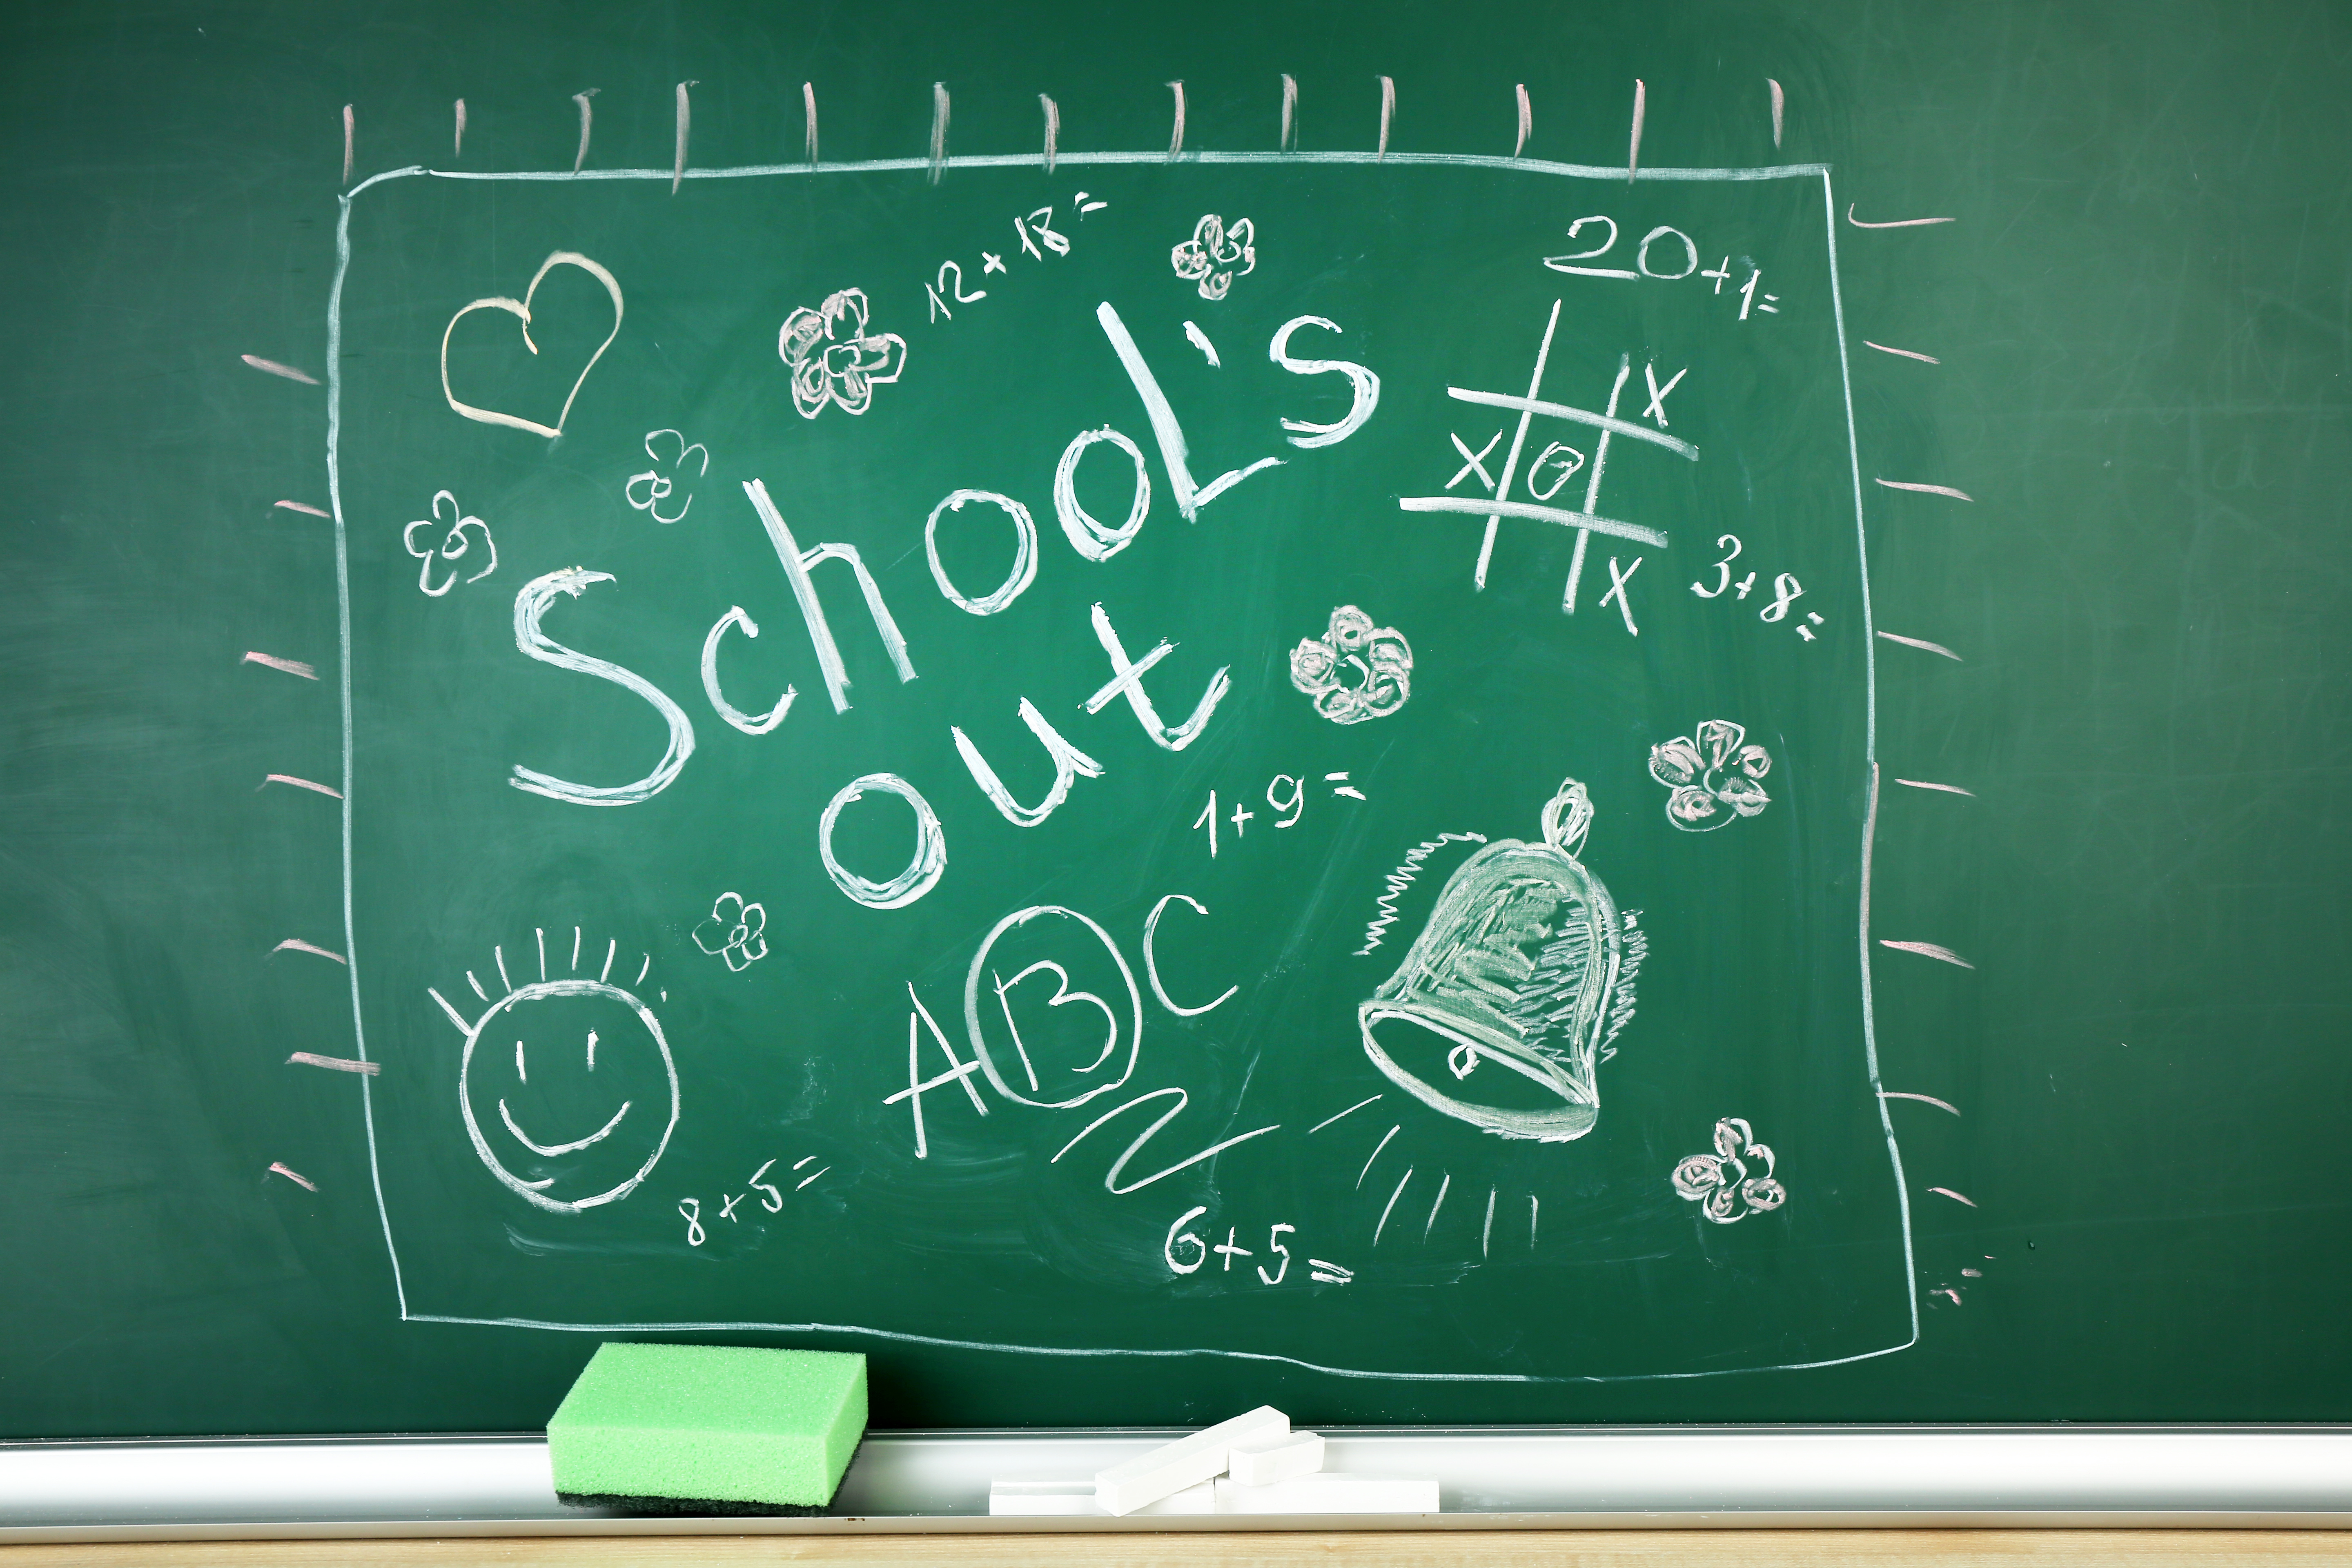 12 x 18 =
20+1=
School's
X
X O
X
3+8=
out
1+9=
ABC
8+5=
6+5=